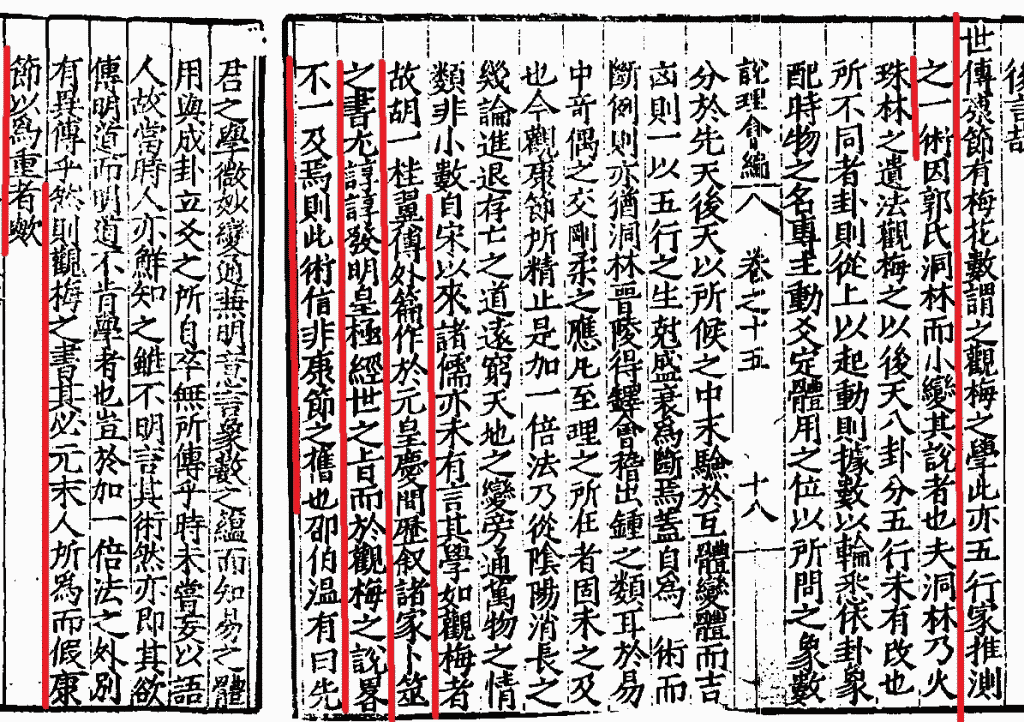 後言哉
世傳康節有梅花數謂之觀梅之學此亦五行家推測
之一術因郭氏洞林而小變其說者也夫洞林乃火
珠林之遺法觀梅之以後天八卦分五行未有改也
所不同者卦則從上以起動則據數以輪依卦象
配時物之名專主動爻定體用之位以所問之象數
說理會編 八 卷之十五 十八
分於先天後天以所候之中不驗於互體變體而吉
凶則一以五行之生尅盛衰為斷焉蓋自為一術而
斷例則亦猶洞林晉陵得鐸會稽出鍾之類耳於易
中竒偶之交剛柔之應凡至理之所在者固未之及
也今觀康節所精止是加一倍法乃從陰陽消長之
幾論進退存亡之道遂窮天地之變旁通萬物之情
類非小數自宋以來諸儒亦未有言其學如觀梅者
故胡一桂翼傳外篇作於元皇慶間歷叙諸家卜筮
之書尤諄諄發明皇極經世之旨而於觀梅之說畧
不一及焉則此術信非康節之舊也邵伯温有曰先
君之學微妙變通無明意言象數之蘊而知易之體
用與成卦立爻之所自卒無所傳乎時未嘗妄以語
人故當時人亦鮮知之雖不明言其術然亦即其欲
傳明道而明道不肯學者也豈於加一倍法之外别
有異傳乎然則觀梅之書其必元末人所為而假康
節以為重者歟